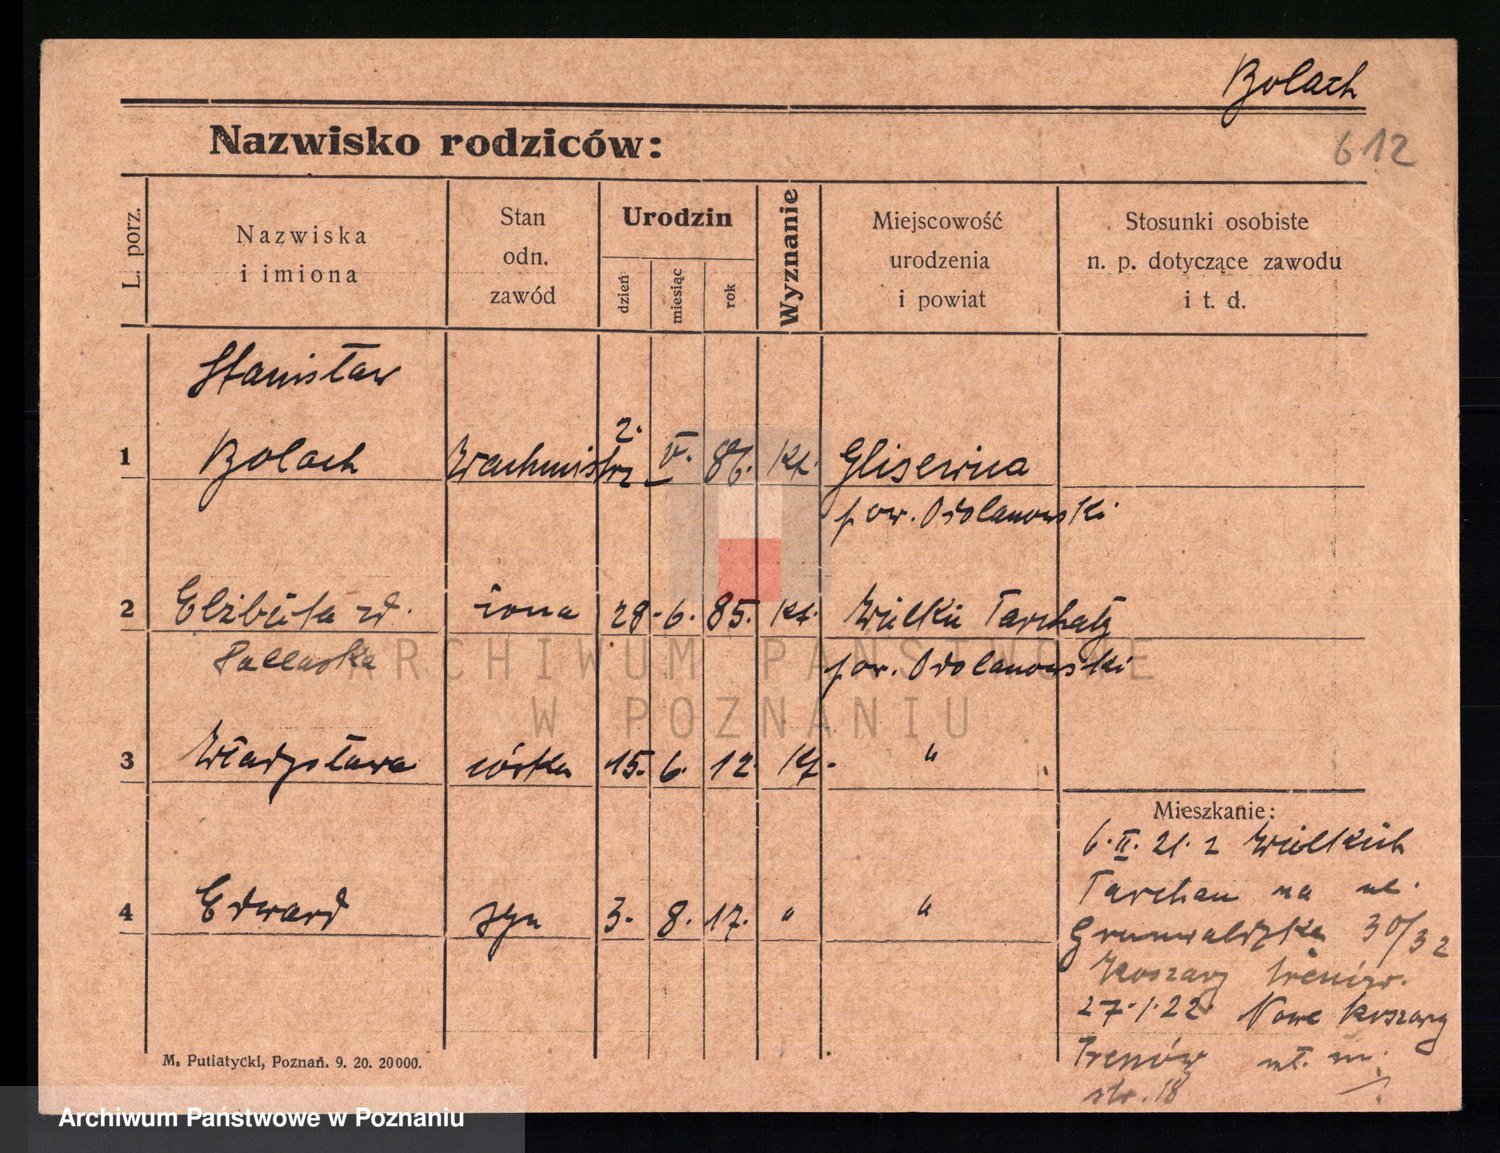 Bolach
612
Nazwisko rodziców:
L. porz.
Nazwiska
i imiona
Stan
odn.
zawód
Urodzin
dzień
miesiąc
rok
Wyznanie
Miejscowość
urodzenia
i powiat
Stosunki osobiste
n. p. dotyczące zawodu
i t. d.
Stanisław
1 Bolach Wachmistrz 2. V. 86. kt. Glisewica
pow. Odolanowski
2 Elżbieta zd. żona 28. 6. 85. kt. Wielkie Tarchały
pow. Odolanowski
3 Władysława córka 15. 6. 12. kt. "
Mieszkanie:
6. II. 21. z Wielkich
4 Edward syn 3. 8. 17. " "
Tarchał na ul.
Grunwaldzka 30/32
Koszary trenów.
27.1.22. Nowe koszary
Trenów
str. 18
M. Putiatycki, Poznań. 9. 20. 20000.
ARCHIWUM PAŃSTWOWE
W POZNANIU
Archiwum Państwowe w Poznaniu